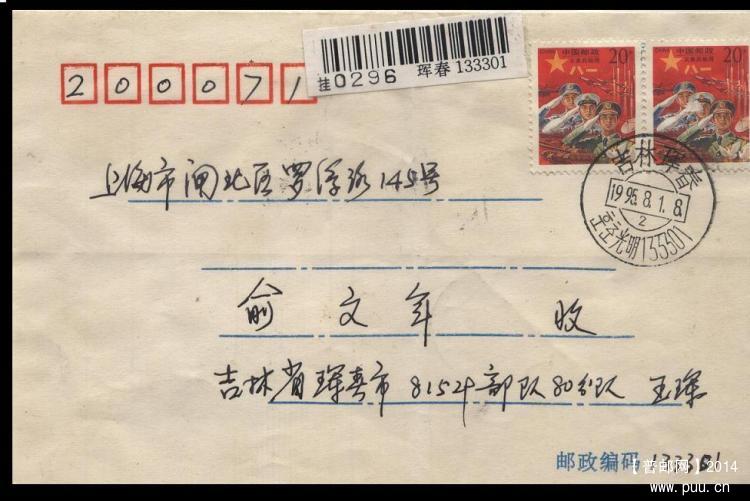 挂0296 珲春 133301
中国邮政 20分
义务兵贴用
八一
中国邮政 20
义务兵贴用
八一
200071
吉林 珲春
1995.8.1.8
2
光明133301
上海市闸北区罗浮路145号
俞文年 收
吉林省珲春市81524部队80分队 王珲
邮政编码 133301
【普邮网】2014
www.puu.cn